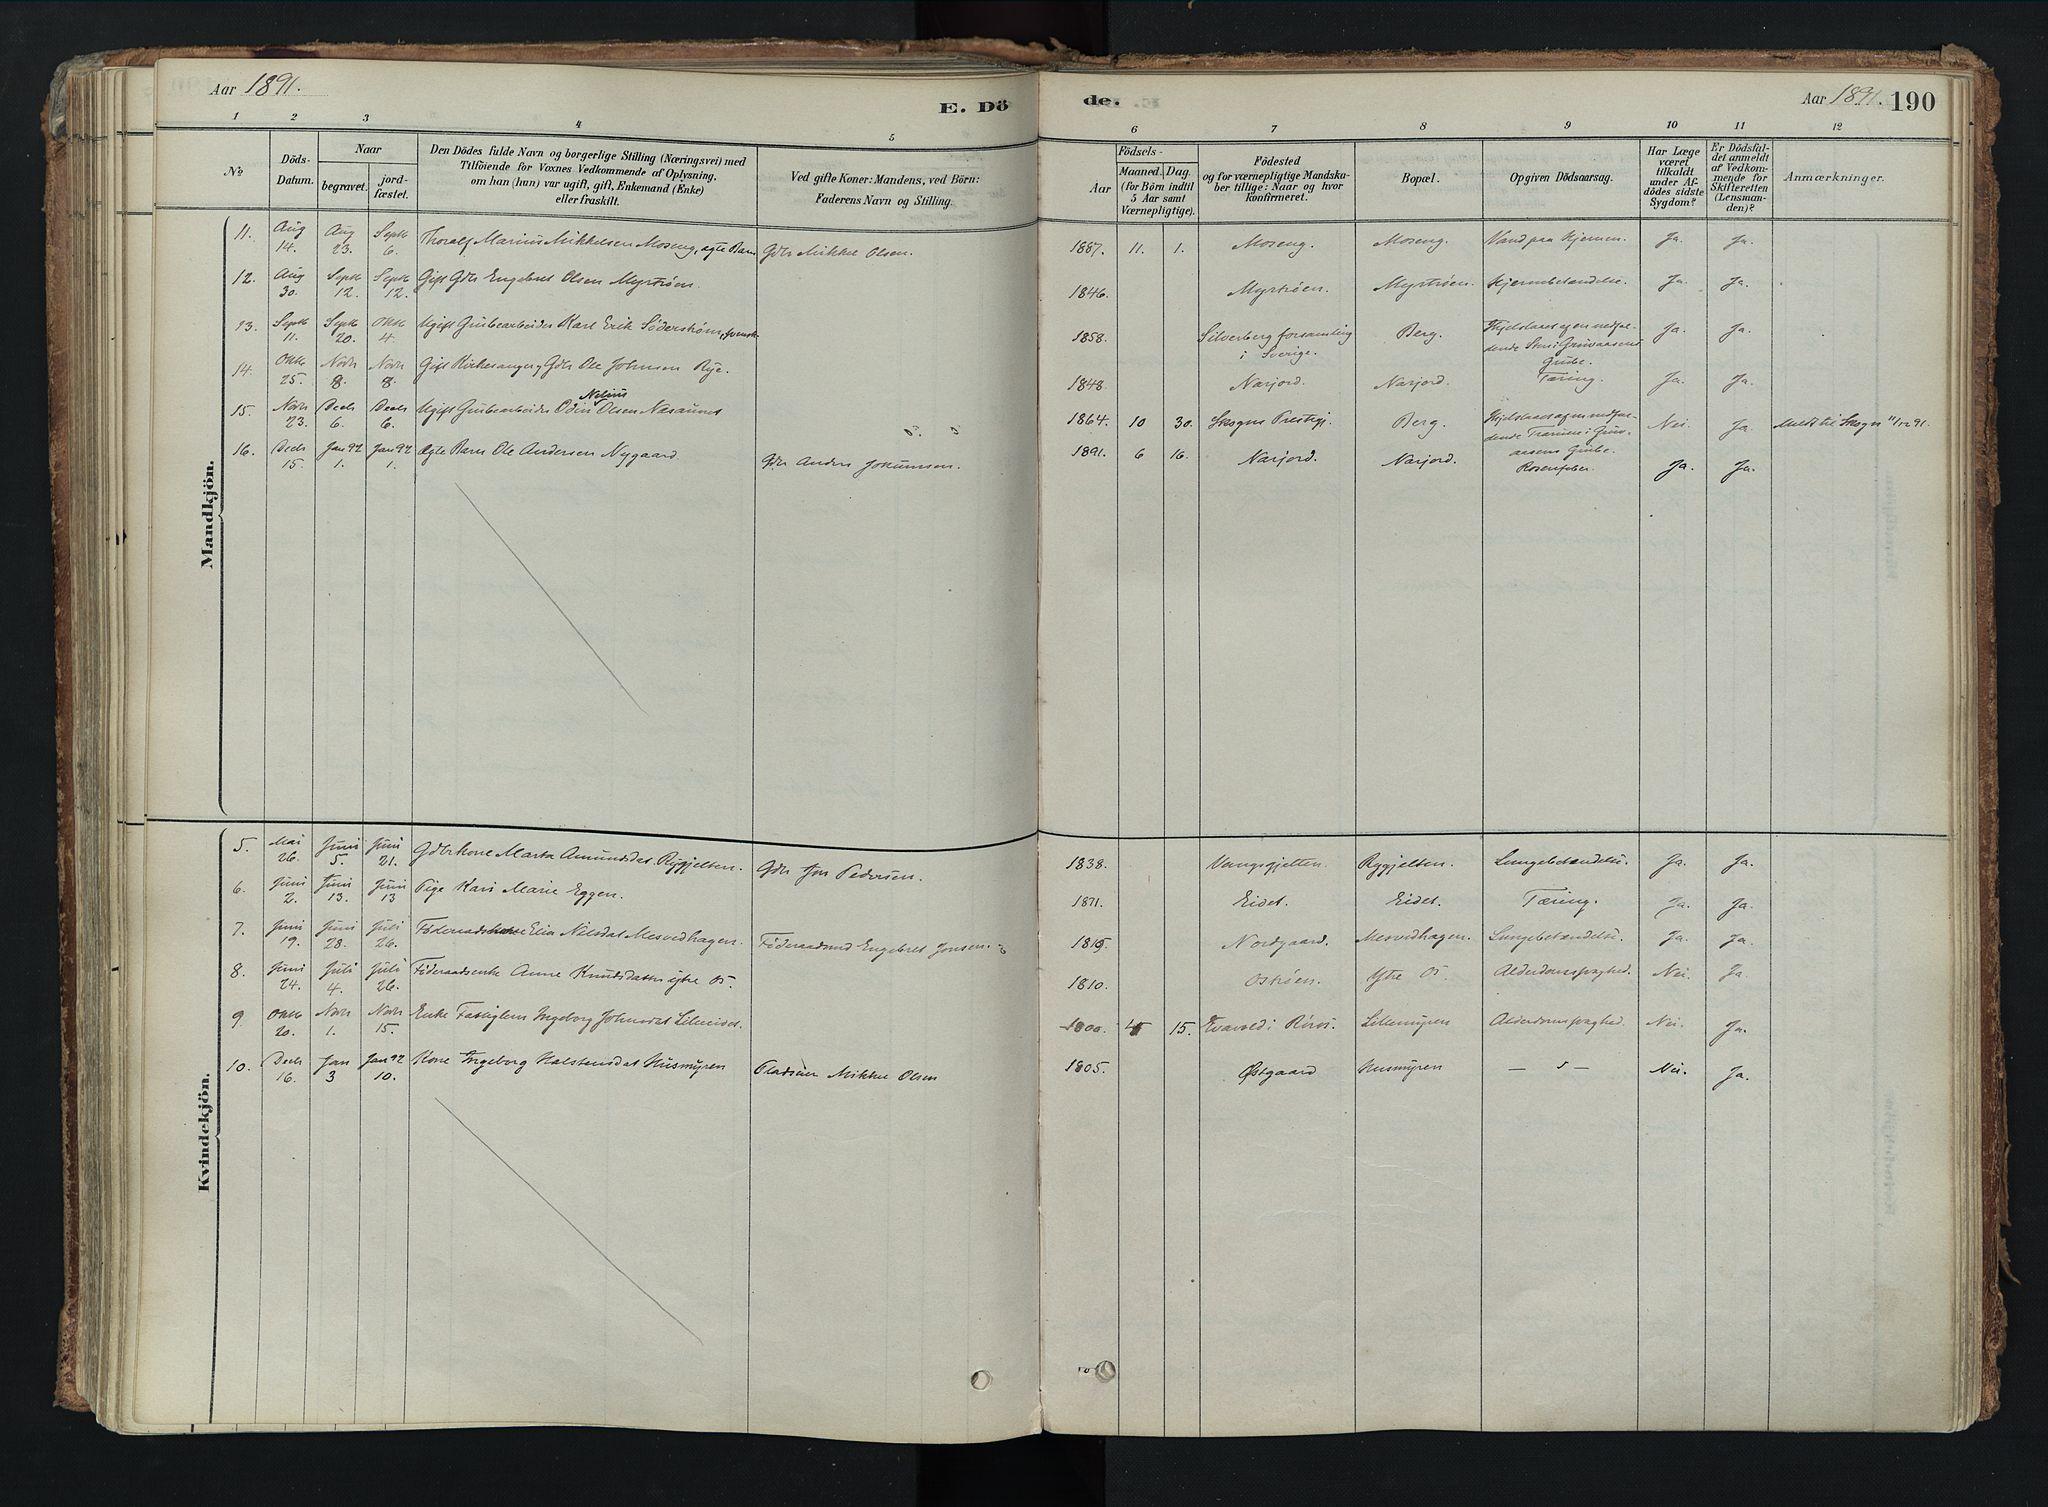 Aar 1891.
E. Döde.
Aar 1891. 190
1 2 3 4 5 6 7 8 9 10 11 12
No
Döds-Datum.
Naar
begravet.
jord-fæstet.
Den Dödes fulde Navn og borgerlige Stilling (Næringsvei) med
Tilföiende for Voxnes Vedkommende af Oplysning,
om han (hun) var ugift, gift, Enkemand (Enke)
eller fraskilt.
Ved gifte Koner: Mandens, ved Börn:
Faderens Navn og Stilling.
Födsels-
Aar
Maaned. Dag.
(for Börn indtil
5 Aar samt
Værnepligtige).
Födested
og for værnepligtige Mandska-
ber tillige: Naar og hvor
konfirmeret.
Bopæl.
Opgiven Dödsaarsag.
Har Læge
været
tilkaldt
under Af-
dödes sidste
Sygdom?
Er Dödsfal-
det anmeldt
af Vedkom-
mende for
Skifteretten
(Lensman-
den)?
Anmærkninger.
Mandkjön.
11. Aug 14. Aug 23. Septb 6. Thoralf Marius Mikkelsen Moseng, ægte Barn Gbr Mikkel Olsen. 1887. 11. 1. Moseng. Moseng. Vand paa Hjernen. Ja. Ja.
12. Aug 30. Septb 12. Septb 12. Gift Gbr Engebret Olsen Myrtröen. 1846. Myrtröen. Myrtröen. Hjernebetændelse. Ja. Ja.
13. Septb 11. Septb 20. Oktb 4. Ugift Grubearbeider Karl Erik Söderström, svensk 1858. Silverberg forsamling i Sverige. Berg. Ihjelslaaet af en nedfal-
dende Sten i Gruvaasens
Grube. Ja. Ja.
14. Oktb 25. Novb 8. Novb 8. Gift Kirkesanger, Gbr Ole Johnsen Rye. 1848. Narjord. Narjord. Tæring. Ja. Ja.
15. Novb 23. Decb 6. Decb 6. Ugift Grubearbeider Odin Nelius Olsen Næsaunet 1864. 10 30. Skogns Prestegj. Berg. Ihjelslaaet af en nedfal-
dende i Gruv-
aasens Grube. Nei. Ja. Meldt til Skogn 11/12 91.
16. Decb 15. Jan 92 1. Jan 92 1. Ægte Barn Ole Andersen Nygaard Gbr Anders Jokumsen. 1891. 6 16. Narjord. Narjord. Rosenfeber. Ja. Ja.
Kvindekjön.
5. Mai 26. Juni 5. Juni 21. Gbrkone Marta Amundsdat. Rygjelten. Gbr Jon Pedersen. 1838. Vangsgjelten. Rygjelten. Lungebetændelse. Ja. Ja.
6. Juni 2. Juni 13. Juni 13 Pige Kari Marie Eggen. 1871. Eidet. Eidet. Tæring. Ja. Ja.
7. Juni 19. Juni 28. Juli 26. Föderaadskone Elin Nilsdat Mesvedhagen. Föderaadsmd Engebret Jonsen. 1815. Nordgaard. Mesvedhagen. Lungebetændelse. Ja. Ja.
8. Juni 24. Juli 4. Juli 26. Föderaadsenke Anne Knudsdatter ytre Os. 1810. Oströen. Ytre Os. Alderdomssvaghed. Nei. Ja.
9 Oktb 20. Novb 1. Novb 15. Enke Fattiglem Ingeborg Johnsdat Lilleeidet. 1800. 4 15. Evavold i Röros. Lillemyren Alderdomssvaghed. Nei. Ja.
10. Decb 16. Jan 3 Jan 92 10. Kone Ingeborg Halstensdat Husmyren Pladsmr Mikkel Olsen 1805. Østgaard Husmyren — s — Nei. Ja.